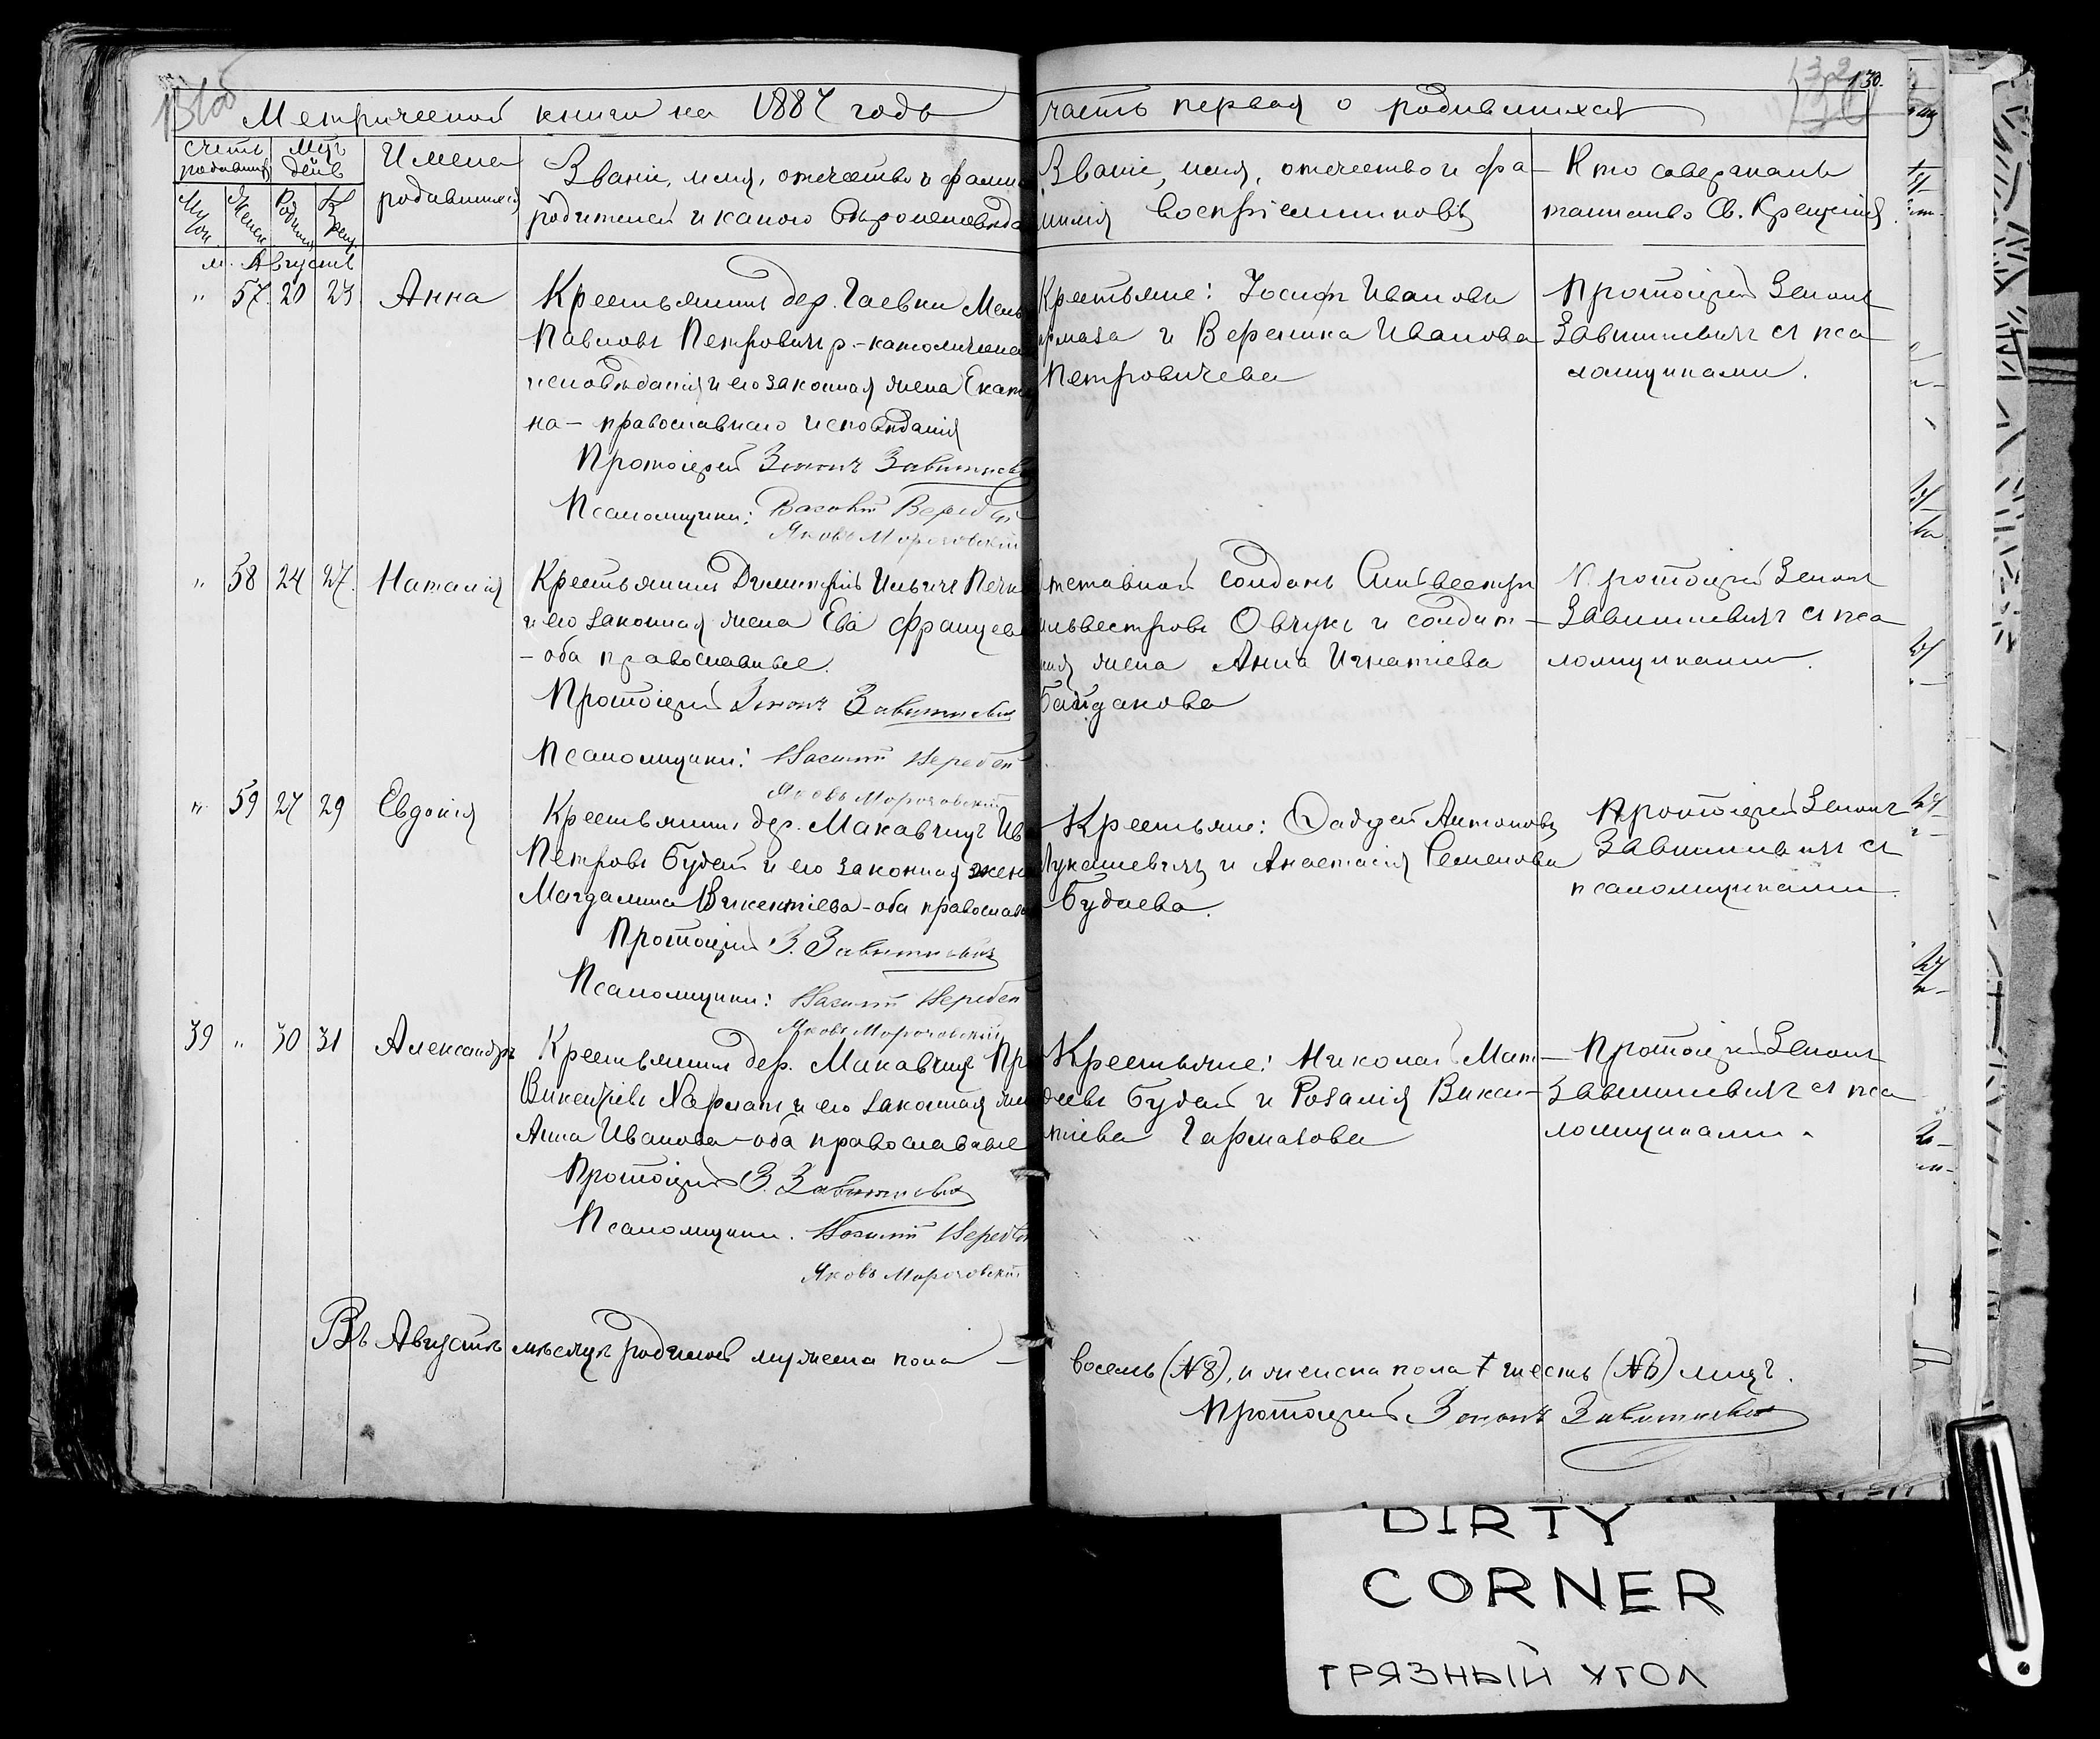 Метрической книги на 1887 годъ
часть первая о родившихся
130.
Счетъ родившихся
Муж.
Женск.
Родился
Крещ.
Имена
родившихся
Званіе, имя, отечество и фами
родителей и какого вѣроисповѣда
Званіе, имя, отечество и фа-
милія воспріемниковъ
Кто совершалъ
таинство Св. Крещенія
м. Августъ
" 57. 20 23 Анна
Крестьянинъ дер. Гаевки
Павловъ Петровичъ р.-католическа
исповѣданія и его законная жена Екате
на – православнаго исповѣданія
Протоіерей Зенонъ Завитневи
Псаломщики: Василій Веребей
Яковъ Морочовскій
Крестьяне: Іосифъ Ивановъ
рмаза и Вероника Иванова
Петровичева
Протоіерей Зенонъ
Завитневичъ съ пса-
ломщиками.
" 58 24 27. Наталія
Крестьянинъ Димитрій Ильичъ
и его законная жена Ева Францева
– оба православные.
Протоіерей Зенонъ Завитневич
Псаломщики: Василій Веребей
Яковъ Морочовскій
тставной солдатъ Сильвестръ
ильвестровъ Овчукъ и солдат-
кая жена Анна Игнатіева
Байдакова
Протоіерей Зенонъ
Завитневичъ съ пса-
ломщиками.
" 59 27 29 Евдокія
Крестьянинъ дер. Макавчицъ Ив
Петровъ Будей и его законная жена
Магдалина Викентіева – оба православ
Протоіерей З. Завитневичъ
Псаломщики: Василій Веребей
Яковъ Морочовскій
Крестьяне: Фадей Антоновъ
Лукашевичъ и Анастасія Семенова
Будаева.
Протоіерей Зенонъ
Завитневичъ съ
псаломщиками.
39 " 30 31 Александръ
Крестьянинъ дер. Макавчицъ
Викентіевъ и его законная же
Анна Иванова – оба православные
Протоіерей З. Завитневич
Псаломщики. Василій Веребей
Яковъ Морочовскій
Крестьяне: Николай Мат-
ѳеевъ Будей и Розалія Викен-
тіева Гармазова
Протоіерей Зенонъ
Завитневичъ съ пса-
ломщиками.
Въ Августѣ мѣсяцѣ родилось мужеска пола –
восемь (№8), и женска пола шесть (№6) лицъ.
Протоіерей Зенонъ Завитневич
DIRTY
CORNER
ГРЯЗНЫЙ УГОЛ